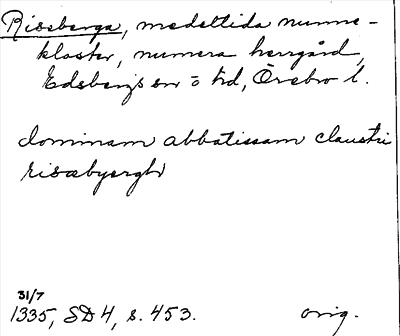 Riseberga, medeltida nunne-
kloster, numera herrgård,
Edsbergs sn o hd, Örebro l.
dominam abbatissam claustri
risæbyerghr
31/7
1335, SD 4, s. 453. orig.